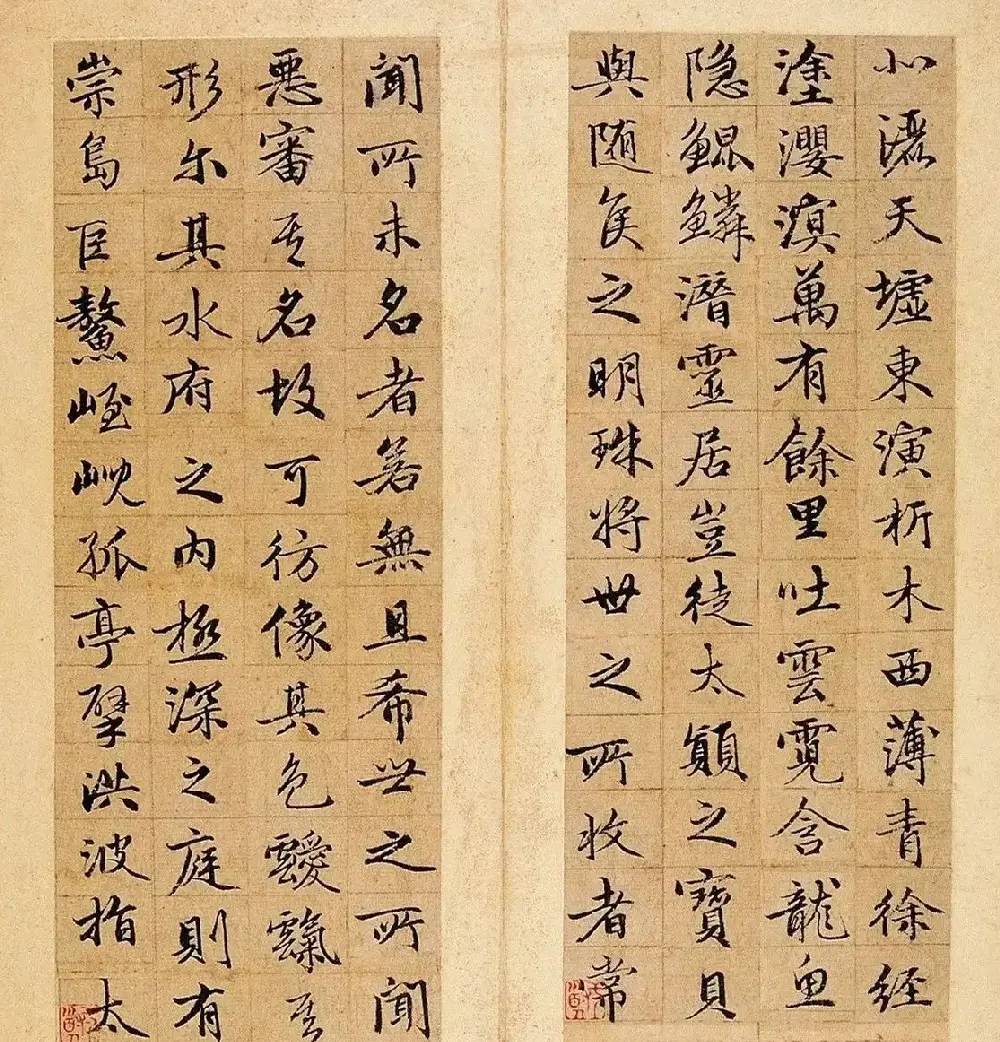 北灑天墟東演析木西薄青徐經
塗瀴溟萬有餘里吐雲霓含龍魚
隱鯤鱗潛靈居豈徒太顛之寶貝
與隨侯之明珠將世之所收者常
聞所未名者若無且希世之所聞
惡審其名故可彷像其色靉霼其
形尔其水府之內極深之庭則有
崇島巨鰲峌峴孤亭擘洪波指太